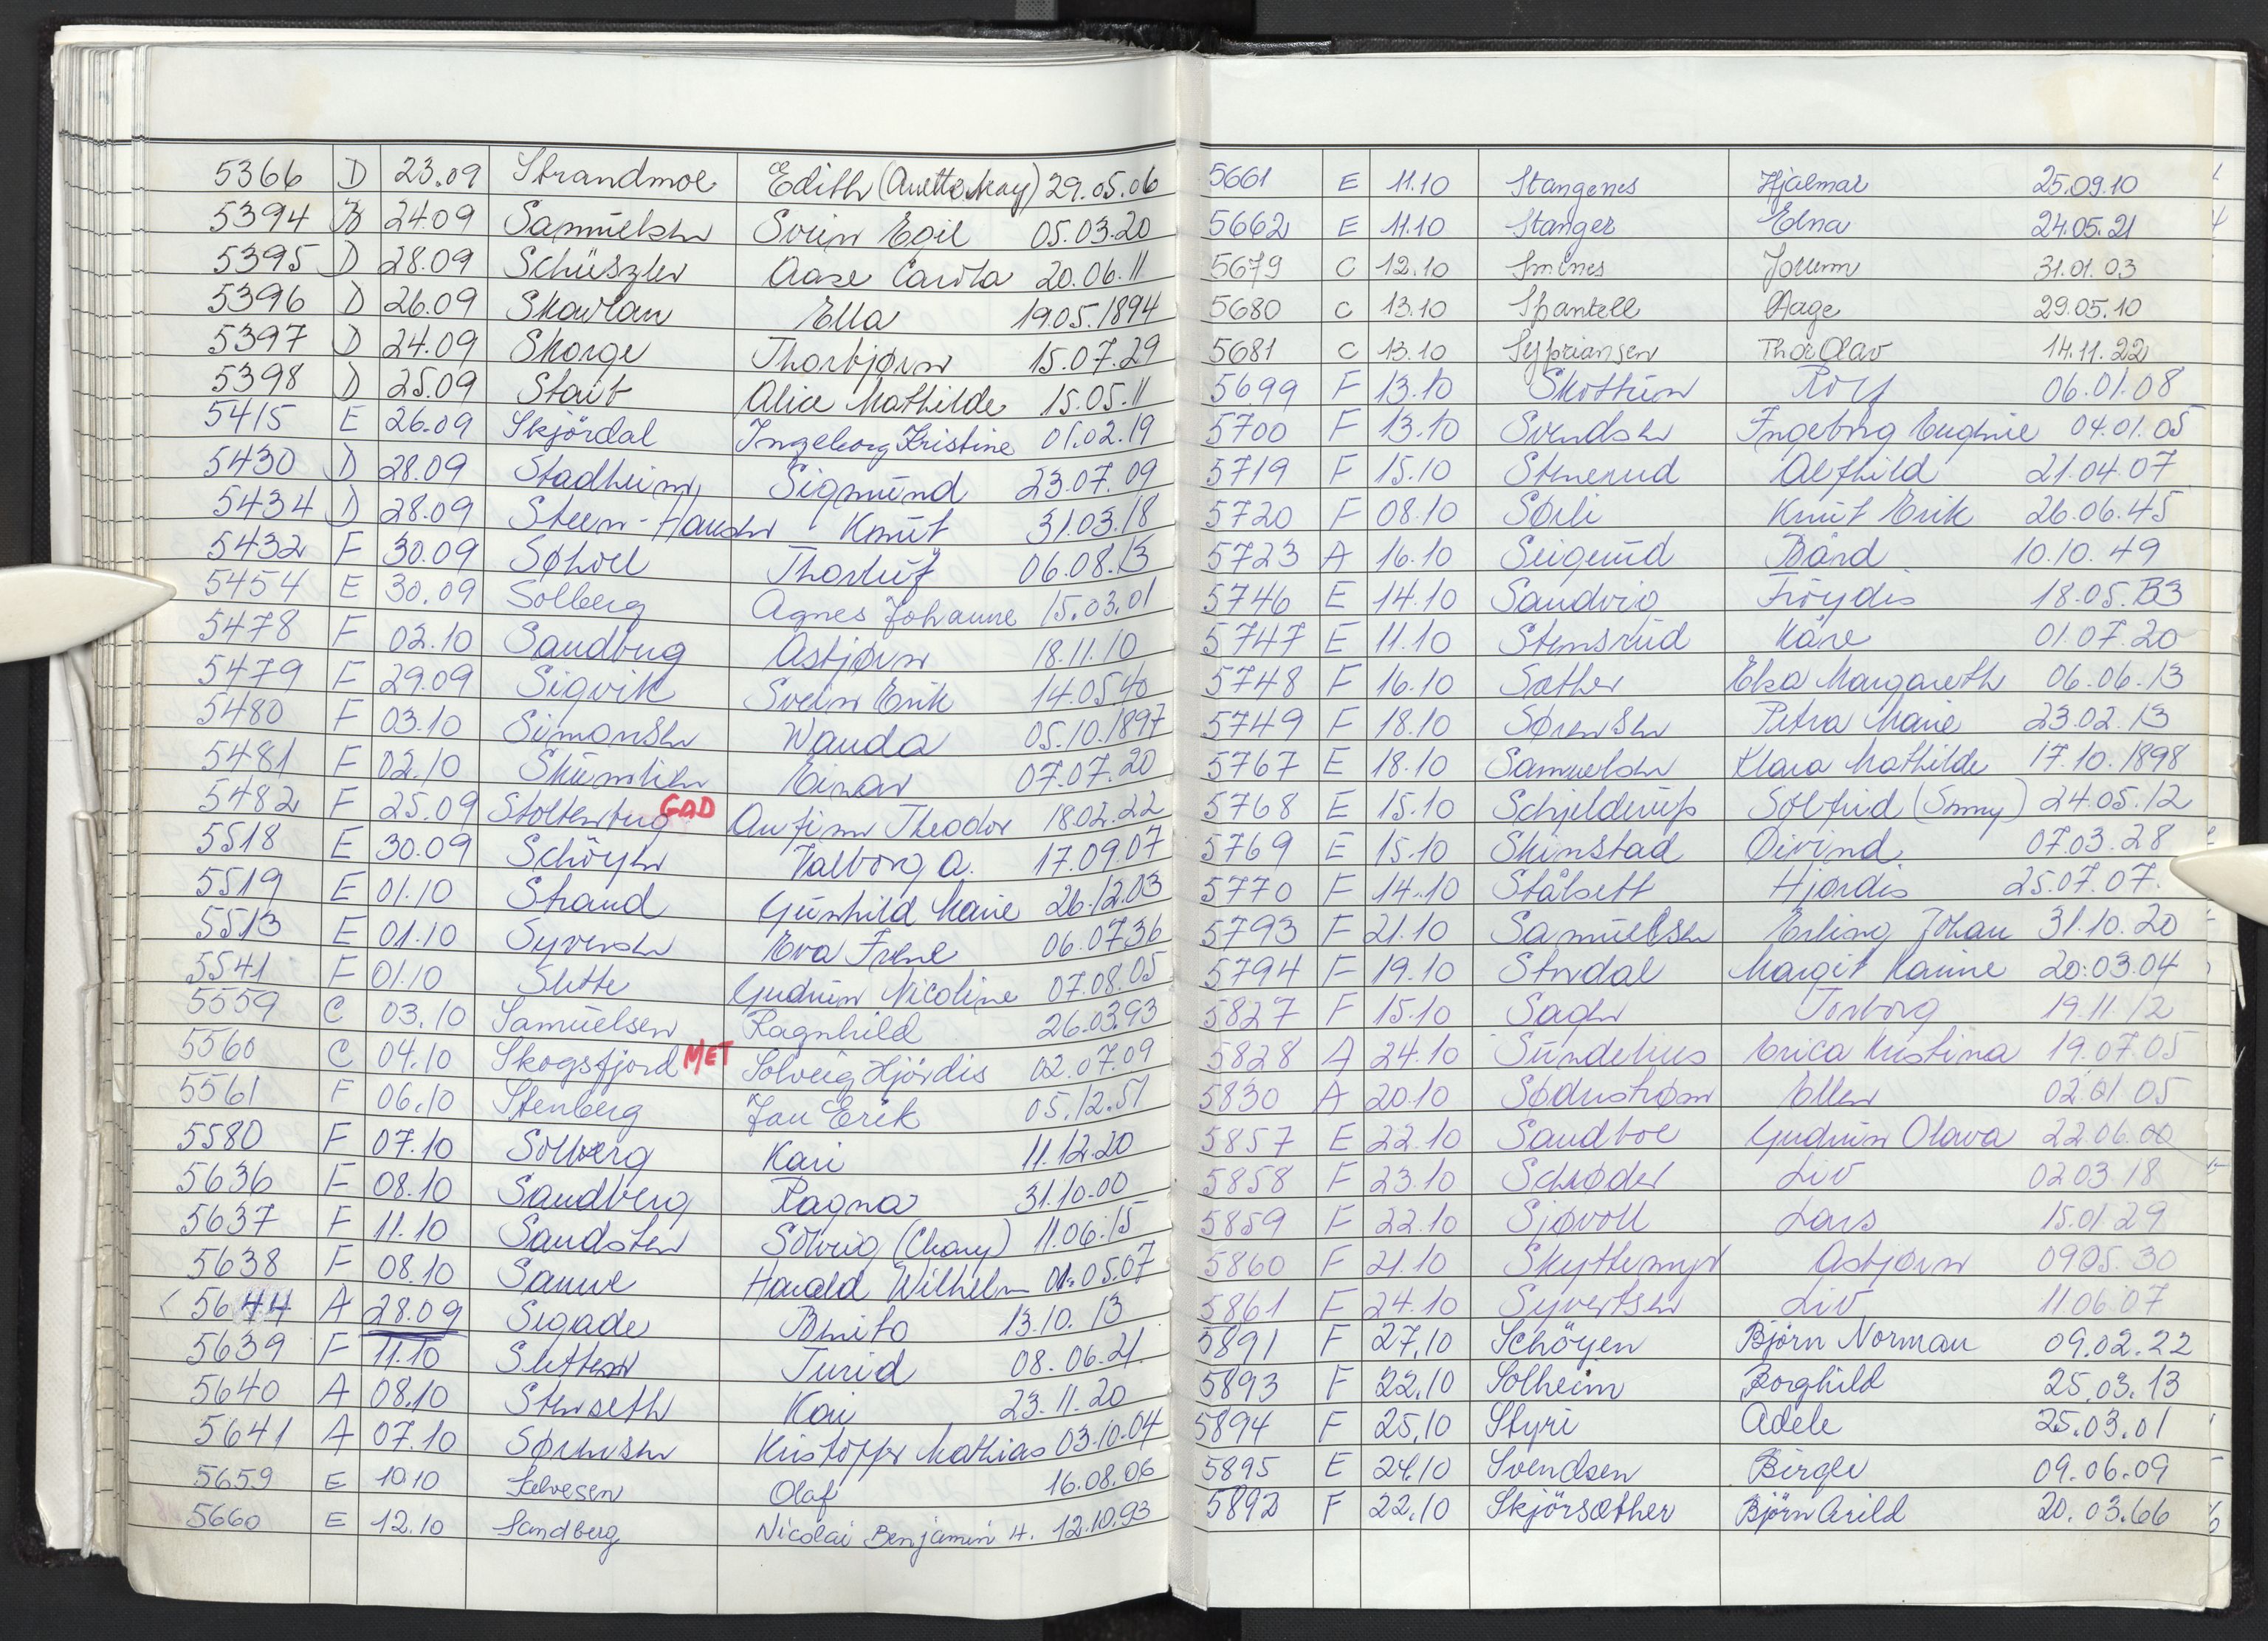 5366 D 23.09 Strandmoe Edith (Anette May) 29.05.06
5394 D 24.09 Samuelsen Svein Egil 05.03.20
5395 D 28.09 Schüszler Aase Carola 20.06.11
5396 D 26.09 Skavlan Ella 19.05.1894
5397 D 24.09 Skorge Thorbjørn 15.07.29
5398 D 25.09 Staib Alice Mathilde 15.05.11
5415 E 26.09 Skjördal Ingeborg Kristine 01.02.19
5430 D 28.09 Stadheim Sigmund 23.07.09
5434 D 28.09 Steen-Hansen Knut 31.03.18
5432 F 30.09 Søhoel Thorleif 06.08.13
5454 E 30.09 Solberg Agnes Johanne 15.03.01
5478 F 02.10 Sandberg Asbjørn 18.11.10
5479 F 29.09 Sigvik Svein Erik 14.05.40
5480 F 03.10 Simonsen Wanda 05.10.1897
5481 F 02.10 Skumlien Einar 07.07.20
5482 F 25.09 Stoltenberg GAD Anfinn Theodor 18.02.22
5518 E 30.09 Schöyen Valborg A. 17.09.07
5519 E 01.10 Strand Gunhild Marie 26.12.03
5513 E 01.10 Syversen Eva Irene 06.07.36
5541 F 01.10 Slette Gudrun Nicoline 07.08.05
5559 C 03.10 Samuelsen Ragnhild 26.03.93
5560 C 04.10 Skogsfjord MET Solveig Hjördis 02.07.09
5561 F 06.10 Stenberg Jan Erik 05.12.51
5580 F 07.10 Solberg Kari 11.12.20
5636 F 08.10 Sandberg Ragna 31.10.00
5637 F 11.10 Sandsten Solveig (Chary) 11.06.15
5638 F 08.10 Sanne Harald Wilhelm 01.05.07
5644 A 28.09 Segade Benito 13.10.13
5639 F 11.10 Sletten Turid 08.06.21.
5640 A 08.10 Stenseth Kai 23.11.20
5641 A 07.10 Sørensen Kristoffer Mathias 03.10.04
5659 E 10.10 Selvesen Olaf 16.08.06
5660 E 12.10 Sandberg Nicolai Benjamin H. 12.10.93
5661 E 11.10 Stangenes Hjalmar 25.09.10
5662 E 11.10 Stanger Edna 24.05.21
5679 C 12.10 Smines Jorunn 31.01.03
5680 C 13.10 Spantell Aage 29.05.10
5681 C 13.10 Sypriansen Thor Olav 14.11.22
5699 F 13.10 Skottun Rolf 06.01.08
5700 F 13.10 Svendsen Ingeborg Eugenie 04.01.05
5719 F 15.10 Stenerud Alfhild 21.04.07
5720 F 08.10 Sørli Knut Erik 26.06.45
5723 A 16.10 Seigerud Bård 10.10.49
5746 E 14.10 Sandvig Fröydis 18.05.
5747 E 11.10 Stensrud Kåre 01.07.20
5748 F 16.10 Sæther Elsa Margareth 06.06.13
5749 F 18.10 Sørensen Petra Marie 23.02.13
5767 E 18.10 Samuelsen Klara Mathilde 17.10.1898
5768 E 15.10 Schjelderup Solfrid (Snny) 24.05.12
5769 E 15.10 Skinstad Øivind 07.03.28
5770 F 14.10 Stålsett Hjørdis 25.07.07.
5793 F 21.10 Samuelsen Erling Johan 31.10.20
5794 F 19.10 Stødal Margit Karine 20.03.04
5827 F 15.10 Sagen Torborg 19.11.12
5828 A 24.10 Sundelius Erica Kristina 19.07.05
5830 A 20.10 Søderstrøm Ellen 02.01.05
5857 E 22.10 Sandboe Gudrun Olava 22.06.00
5858 F 23.10 Schrøder Liv 02.03.18
5859 F 22.10 Sjøvoll Lars 15.01.29
5860 F 21.10 Skyttemyr Asbjørn 09.05.30
5861 F 24.10 Syvertsen Liv 11.06.07
5891 F 27.10 Schöyen Björn Norman 09.02.22
5893 F 22.10 Solheim Borghild 25.03.13
5894 F 25.10 Styri Adele 25.03.01
5895 E 24.10 Svendsen Birger 09.06.09
5892 F 22.10 Skjörsæther Björn Arild 20.03.66